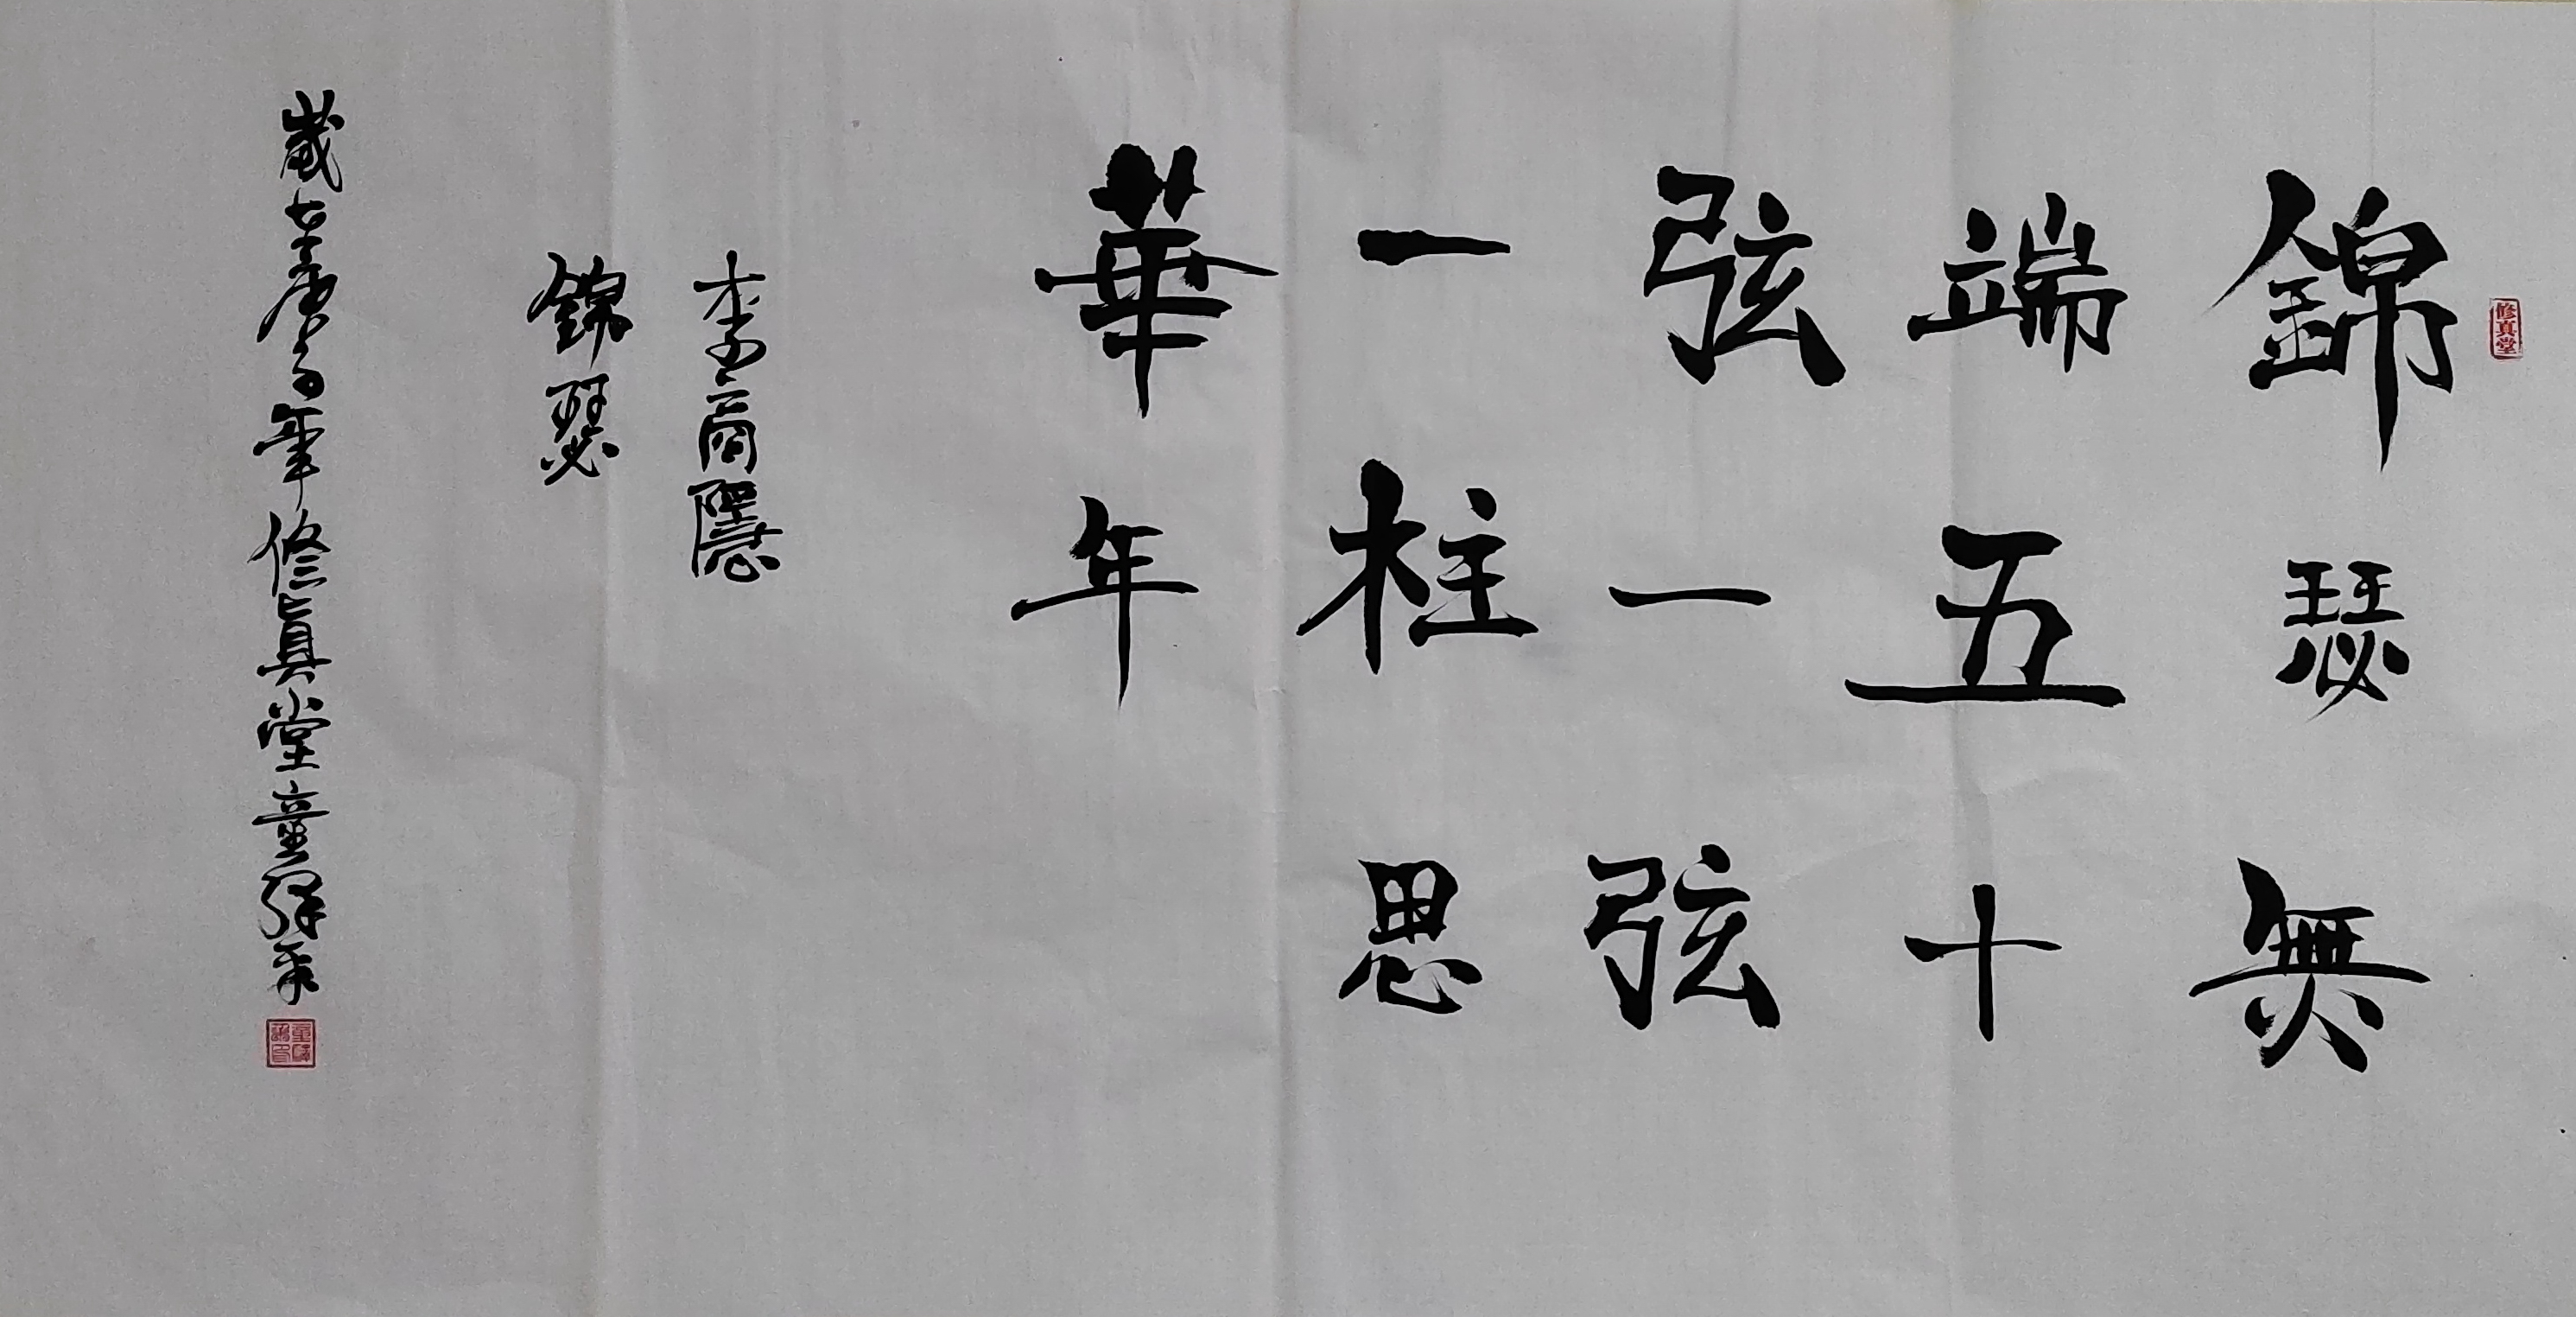 修真堂
錦瑟無
端五十
弦一弦
一柱思
華年
李商隱
錦瑟
歲在庚子年修真堂童